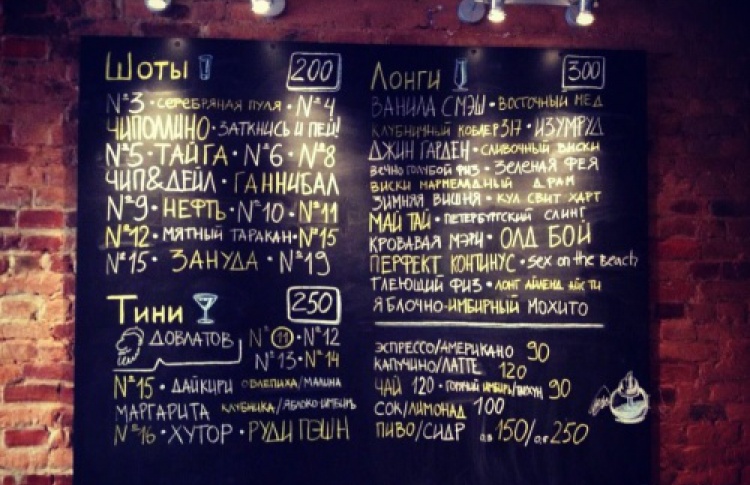 Шоты 200
№3 · СЕРЕБРЯНАЯ ПУЛЯ · №4
ЧИПОЛЛИНО · ЗАТКНИСЬ И ПЕЙ!
№5 · ТАЙГА · №6 · №8
ЧИП&ДЕЙЛ · ГАННИБАЛ
№9 · НЕФТЬ · №10 · №11
№12 · МЯТНЫЙ ТАРАКАН · №15
№15 · ЗАНУДА · №19
Тини 250
ДОВЛАТОВ №11 · №12
№13 · №14
№15 · ДАЙКИРИ ОБЛЕПИХА/МАЛИНА
МАРГАРИТА КЛУБНИКА/ЯБЛОКО-ИМБИРЬ
№16 · ХУТОР · РУДИ ПЭШН
Лонги 300
ВАНИЛА СМЭШ · ВОСТОЧНЫЙ МЕД
КЛУБНИЧНЫЙ КОБЛЕР 317 · ИЗУМРУД
ДЖИН ГАРДЕН · СЛИВОЧНЫЙ ВИСКИ
ВЕЧНО ГОЛУБОЙ ФИЗ · ЗЕЛЕНАЯ ФЕЯ
ВИСКИ МАРМЕЛАДНЫЙ ДРАМ
ЗИМНЯЯ ВИШНЯ · КУЛ СВИТ ХАРТ
МАЙ ТАЙ · ПЕТЕРБУРГСКИЙ СЛИНГ
КРОВАВАЯ МЭРИ · ОЛД БОЙ
ПЕРФЕКТ КОНТИНУС · Sex on the Beach
ТЛЕЮЩИЙ ФИЗ · ЛОНГ АЙЛЕНД АЙС ТИ
ЯБЛОЧНО-ИМБИРНЫЙ МОХИТО
ЭСПРЕССО/АМЕРИКАНО 90
КАПУЧИНО/ЛАТТЕ 120
ЧАЙ 120 · ГОРЯЧИЙ ИМБИРЬ/ТАРХУН 90
СОК/ЛИМОНАД 100
ПИВО/СИДР 0,3 150/0,5 250